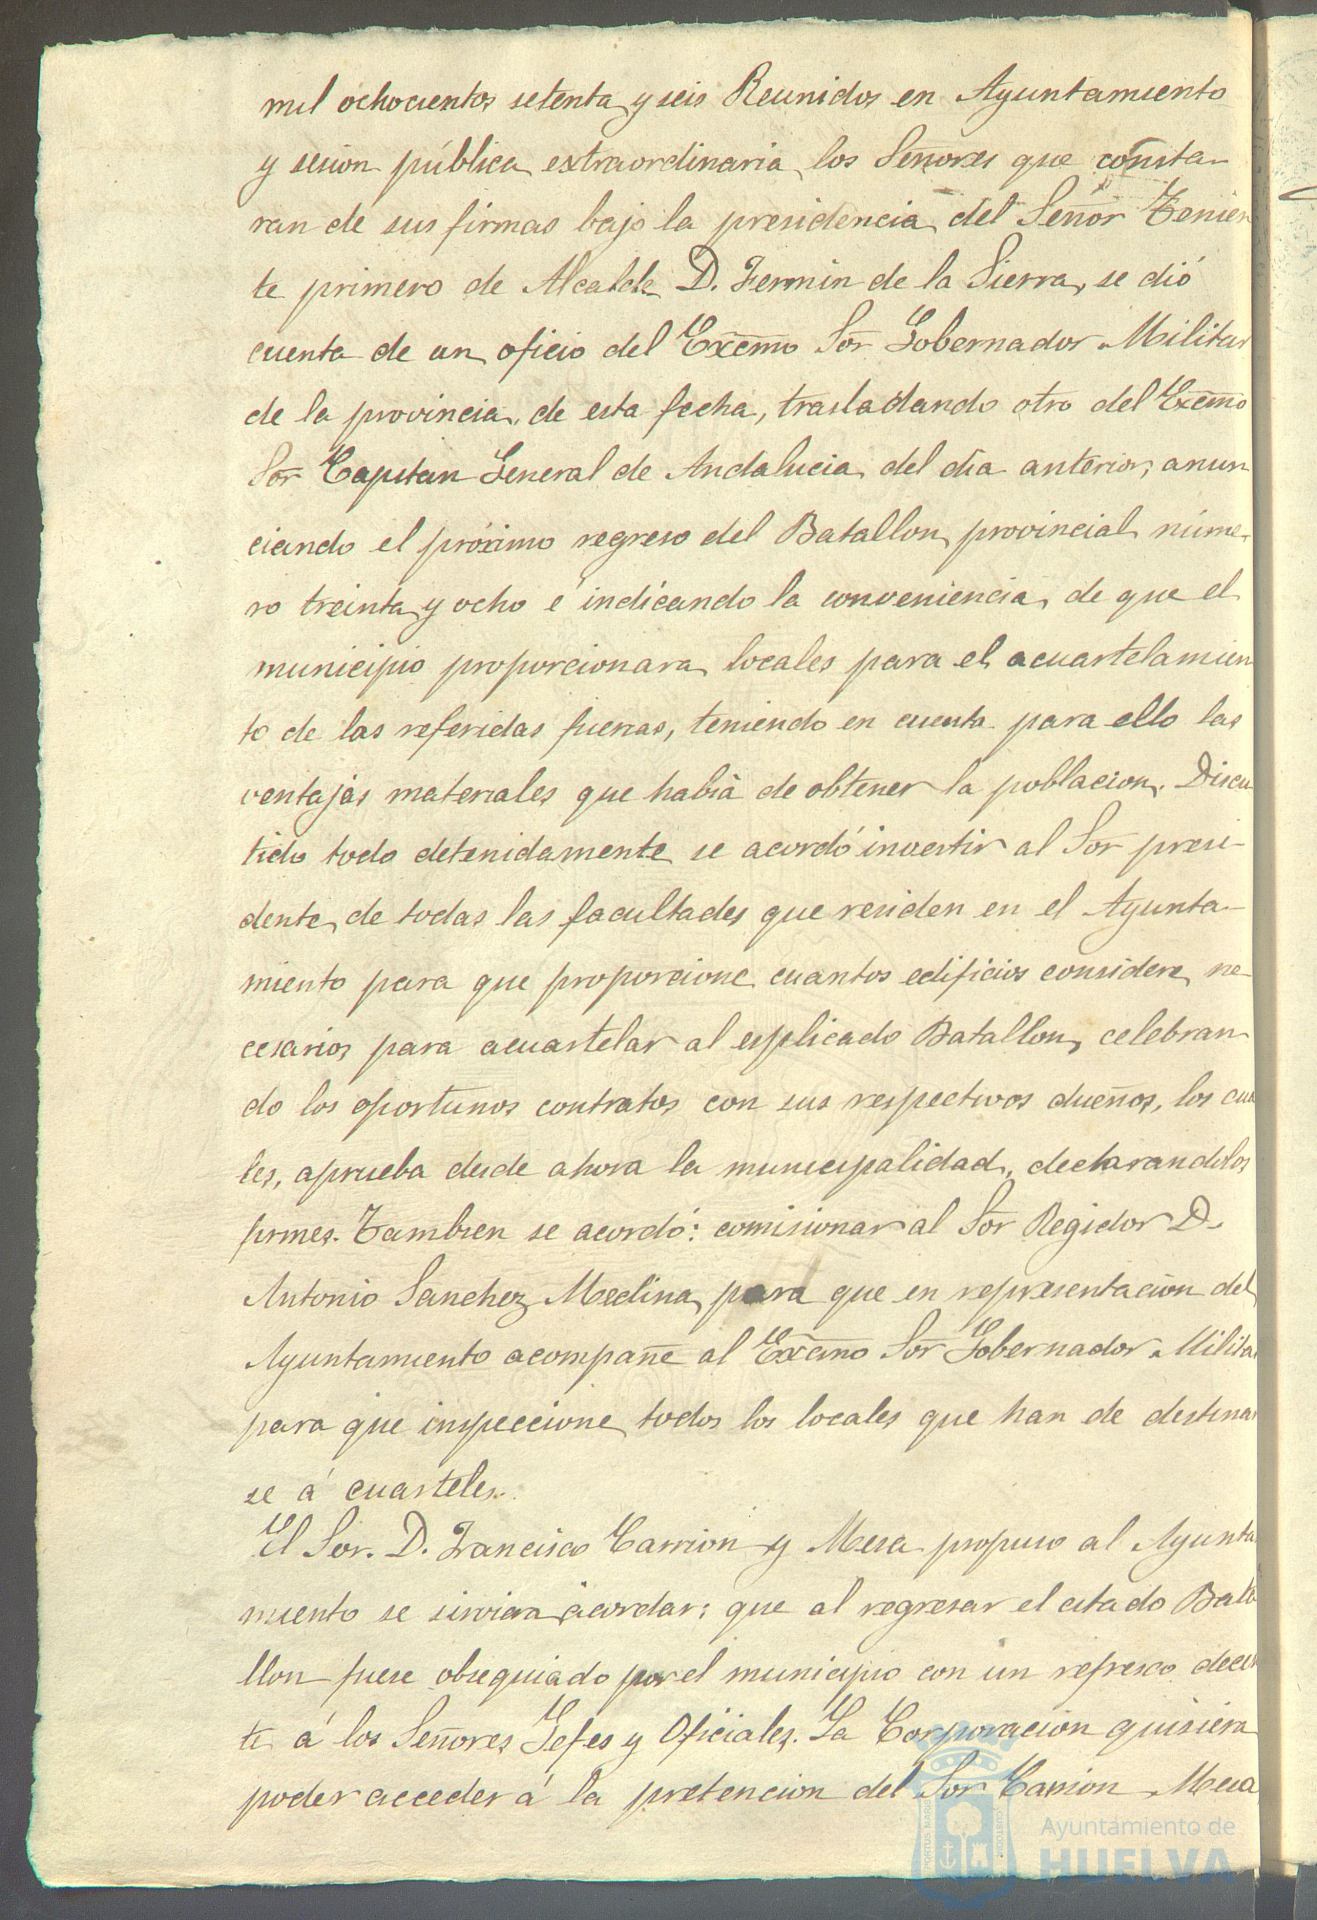 mil ochocientos setenta y seis Reunidos en Ayuntamiento
y sesion pública extraordinaria los Señores que consta-
ran de sus firmas bajo la presidencia del Señor Tenien
te primero de Alcalde D. Fermin de la Sierra, se dió
cuenta de un oficio del Excmo Sor Gobernador Militar
de la provincia, de esta fecha, trasladando otro del Excmo
Sor Capitan General de Andalucia del dia anterior, anun
ciando el próximo regreso del Batallon provincial núme-
ro treinta y ocho é indicando la conveniencia de que el
municipio proporcionara locales para el acuartelamien
to de las referidas fuerzas, teniendo en cuenta para ello las
ventajas materiales que habia de obtener la poblacion. Discu
tido todo detenidamente se acordó investir al Sor presi-
dente de todas las facultades que residen en el Ayunta-
miento para que proporcione cuantos edificios considere ne-
cesarios para acuartelar al esplicado Batallon, celebran-
do los oportunos contratos con sus respectivos dueños, los cua
les, aprueba desde ahora la municipalidad, declarandolos
firmes. Tambien se acordó: comisionar al Sor Regidor D.
Antonio Sanchez Medina para que en representacion del
Ayuntamiento acompañe al Excmo Sor Gobernador Militar
para que inspeccione todos los locales que han de destinar
se á cuarteles.
El Sor. D. Francisco Carrion y Mesa propuso al Ayunta
miento se sirviera acordar: que al regresar el citado Bata
llon fuese obsequiado por el municipio con un refresco decen
te á los Señores Gefes y Oficiales. La Corporacion quisiera
poder acceder á la pretencion del Sor Carrion Mesa
PORTUS MARIS
CUSTODIA
Ayuntamiento de
HUELVA